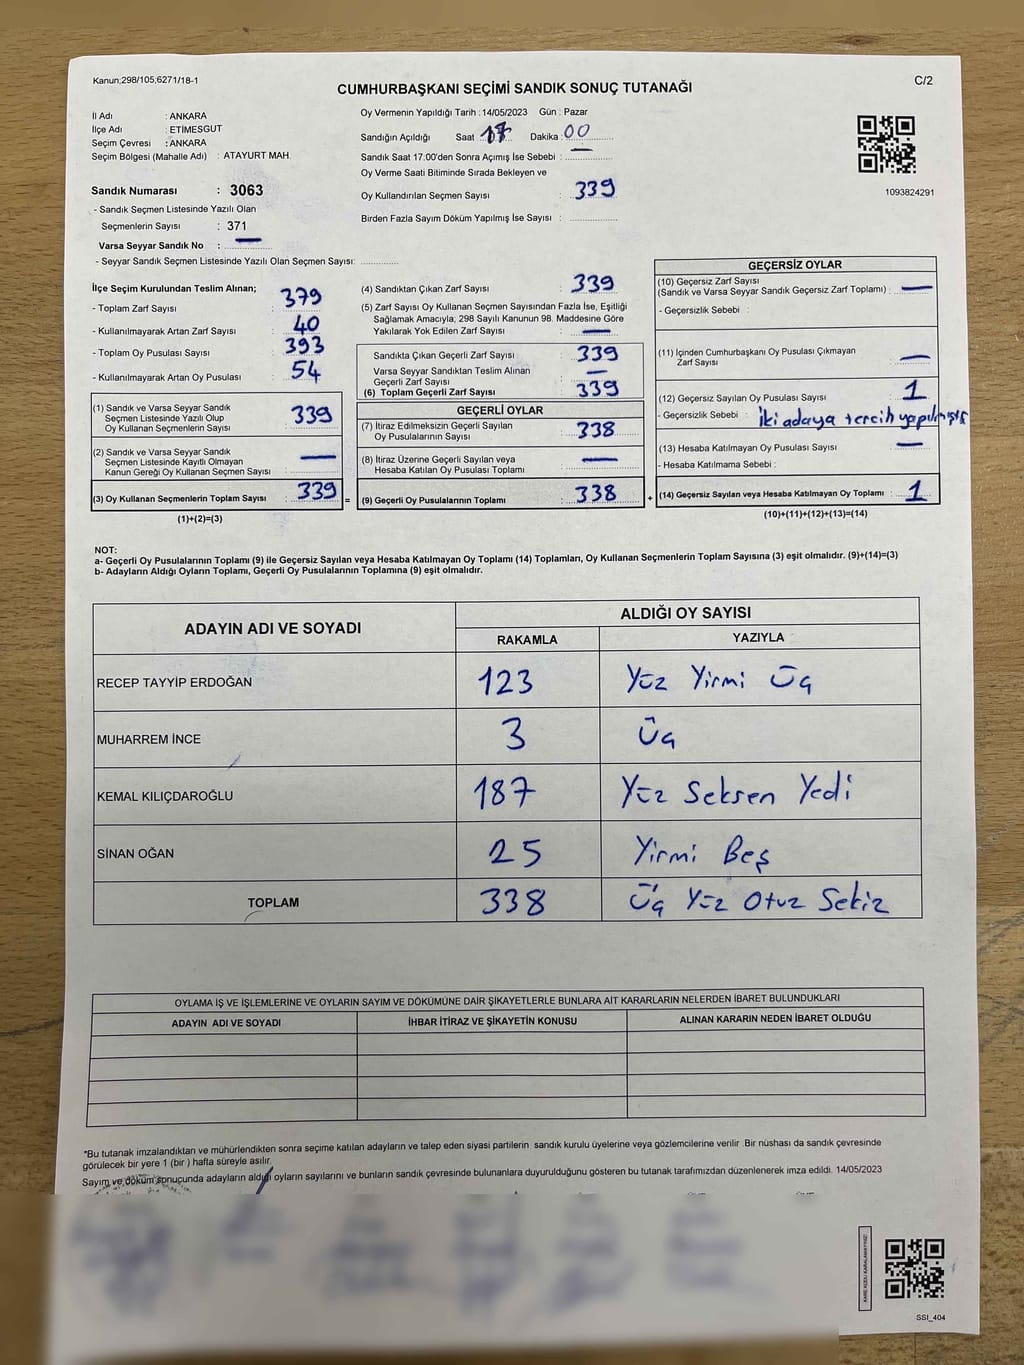 Kanun;298/105,6271/18-1
C/2
CUMHURBAŞKANI SEÇİMİ SANDIK SONUÇ TUTANAĞI
İl Adı : ANKARA
İlçe Adı : ETİMESGUT
Seçim Çevresi : ANKARA
Seçim Bölgesi (Mahalle Adı) : ATAYURT MAH.
Sandık Numarası : 3063
- Sandık Seçmen Listesinde Yazılı Olan
Seçmenlerin Sayısı : 371
Varsa Seyyar Sandık No : —
- Seyyar Sandık Seçmen Listesinde Yazılı Olan Seçmen Sayısı: ............
Oy Vermenin Yapıldığı Tarih : 14/05/2023 Gün : Pazar
Sandığın Açıldığı Saat 17 Dakika : 00
Sandık Saat 17.00'den Sonra Açımış İse Sebebi : —
Oy Verme Saati Bitiminde Sırada Bekleyen ve
Oy Kullandırılan Seçmen Sayısı : 339
Birden Fazla Sayım Döküm Yapılmış İse Sayısı : ............
1093824291
İlçe Seçim Kurulundan Teslim Alınan;
- Toplam Zarf Sayısı : 379
- Kullanılmayarak Artan Zarf Sayısı : 40
- Toplam Oy Pusulası Sayısı : 393
- Kullanılmayarak Artan Oy Pusulası : 54
(1) Sandık ve Varsa Seyyar Sandık
Seçmen Listesinde Yazılı Olup
Oy Kullanan Seçmenlerin Sayısı : 339
(2) Sandık ve Varsa Seyyar Sandık
Seçmen Listesinde Kayıtlı Olmayan
Kanun Gereği Oy Kullanan Seçmen Sayısı : —
(3) Oy Kullanan Seçmenlerin Toplam Sayısı : 339 =
(1)+(2)=(3)
(4) Sandıktan Çıkan Zarf Sayısı : 339
(5) Zarf Sayısı Oy Kullanan Seçmen Sayısından Fazla İse, Eşitliği
Sağlamak Amacıyla, 298 Sayılı Kanunun 98. Maddesine Göre
Yakılarak Yok Edilen Zarf Sayısı : —
Sandıkta Çıkan Geçerli Zarf Sayısı : 339
Varsa Seyyar Sandıktan Teslim Alınan
Geçerli Zarf Sayısı : —
(6) Toplam Geçerli Zarf Sayısı : 339
GEÇERLİ OYLAR
(7) İtiraz Edilmeksizin Geçerli Sayılan
Oy Pusulalarının Sayısı : 338
(8) İtiraz Üzerine Geçerli Sayılan veya
Hesaba Katılan Oy Pusulası Toplamı : —
(9) Geçerli Oy Pusulalarının Toplamı : 338 +
GEÇERSİZ OYLAR
(10) Geçersiz Zarf Sayısı
(Sandık ve Varsa Seyyar Sandık Geçersiz Zarf Toplamı) : —
- Geçersizlik Sebebi :
(11) İçinden Cumhurbaşkanı Oy Pusulası Çıkmayan
Zarf Sayısı : —
(12) Geçersiz Sayılan Oy Pusulası Sayısı : 1
- Geçersizlik Sebebi : İki adaya tercih yapılmıştır
(13) Hesaba Katılmayan Oy Pusulası Sayısı : —
- Hesaba Katılmama Sebebi :
(14) Geçersiz Sayılan veya Hesaba Katılmayan Oy Toplamı : 1
(10)+(11)+(12)+(13)=(14)
NOT:
a- Geçerli Oy Pusulalarının Toplamı (9) ile Geçersiz Sayılan veya Hesaba Katılmayan Oy Toplamı (14) Toplamları, Oy Kullanan Seçmenlerin Toplam Sayısına (3) eşit olmalıdır. (9)+(14)=(3)
b- Adayların Aldığı Oyların Toplamı, Geçerli Oy Pusulalarının Toplamına (9) eşit olmalıdır.
ADAYIN ADI VE SOYADI ALDIĞI OY SAYISI
RAKAMLA YAZIYLA
RECEP TAYYİP ERDOĞAN 123 Yüz Yirmi Üç
MUHARREM İNCE 3 Üç
KEMAL KILIÇDAROĞLU 187 Yüz Seksen Yedi
SİNAN OĞAN 25 Yirmi Beş
TOPLAM 338 Üç Yüz Otuz Sekiz
OYLAMA İŞ VE İŞLEMLERİNE VE OYLARIN SAYIM VE DÖKÜMÜNE DAİR ŞİKAYETLERLE BUNLARA AİT KARARLARIN NELERDEN İBARET BULUNDUKLARI
ADAYIN ADI VE SOYADI İHBAR İTİRAZ VE ŞİKAYETİN KONUSU ALINAN KARARIN NEDEN İBARET OLDUĞU
*Bu tutanak imzalandıktan ve mühürlendikten sonra seçime katılan adayların ve talep eden siyasi partilerin sandık kurulu üyelerine veya gözlemcilerine verilir .Bir nüshası da sandık çevresinde
görülecek bir yere 1 (bir ) hafta süreyle asılır.
Sayım ve döküm sonuçunda adayların aldığı oyların sayılarını ve bunların sandık çevresinde bulunanlara duyurulduğunu gösteren bu tutanak tarafımızdan düzenlenerek imza edildi. 14/05/2023
KARE KODU KARALAMAYINIZ!
SSI_404